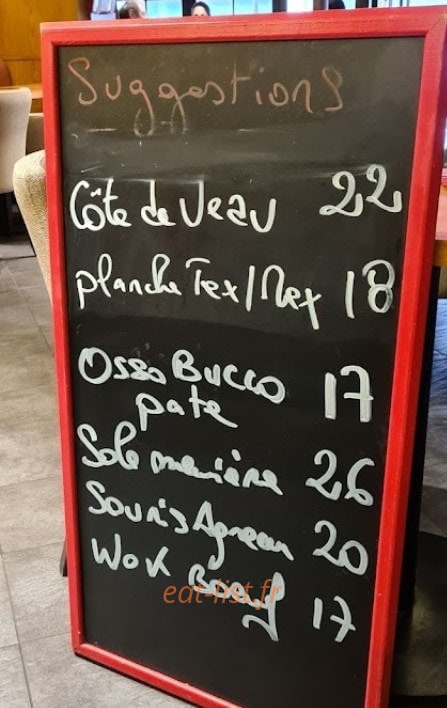 Suggestions
Côte de Veau 22
planche Tex/Mex 18
Osso Bucco 17
pate
Sole meunière 26
Souris Agneau 20
Wok Boeuf 17
eat-list.fr